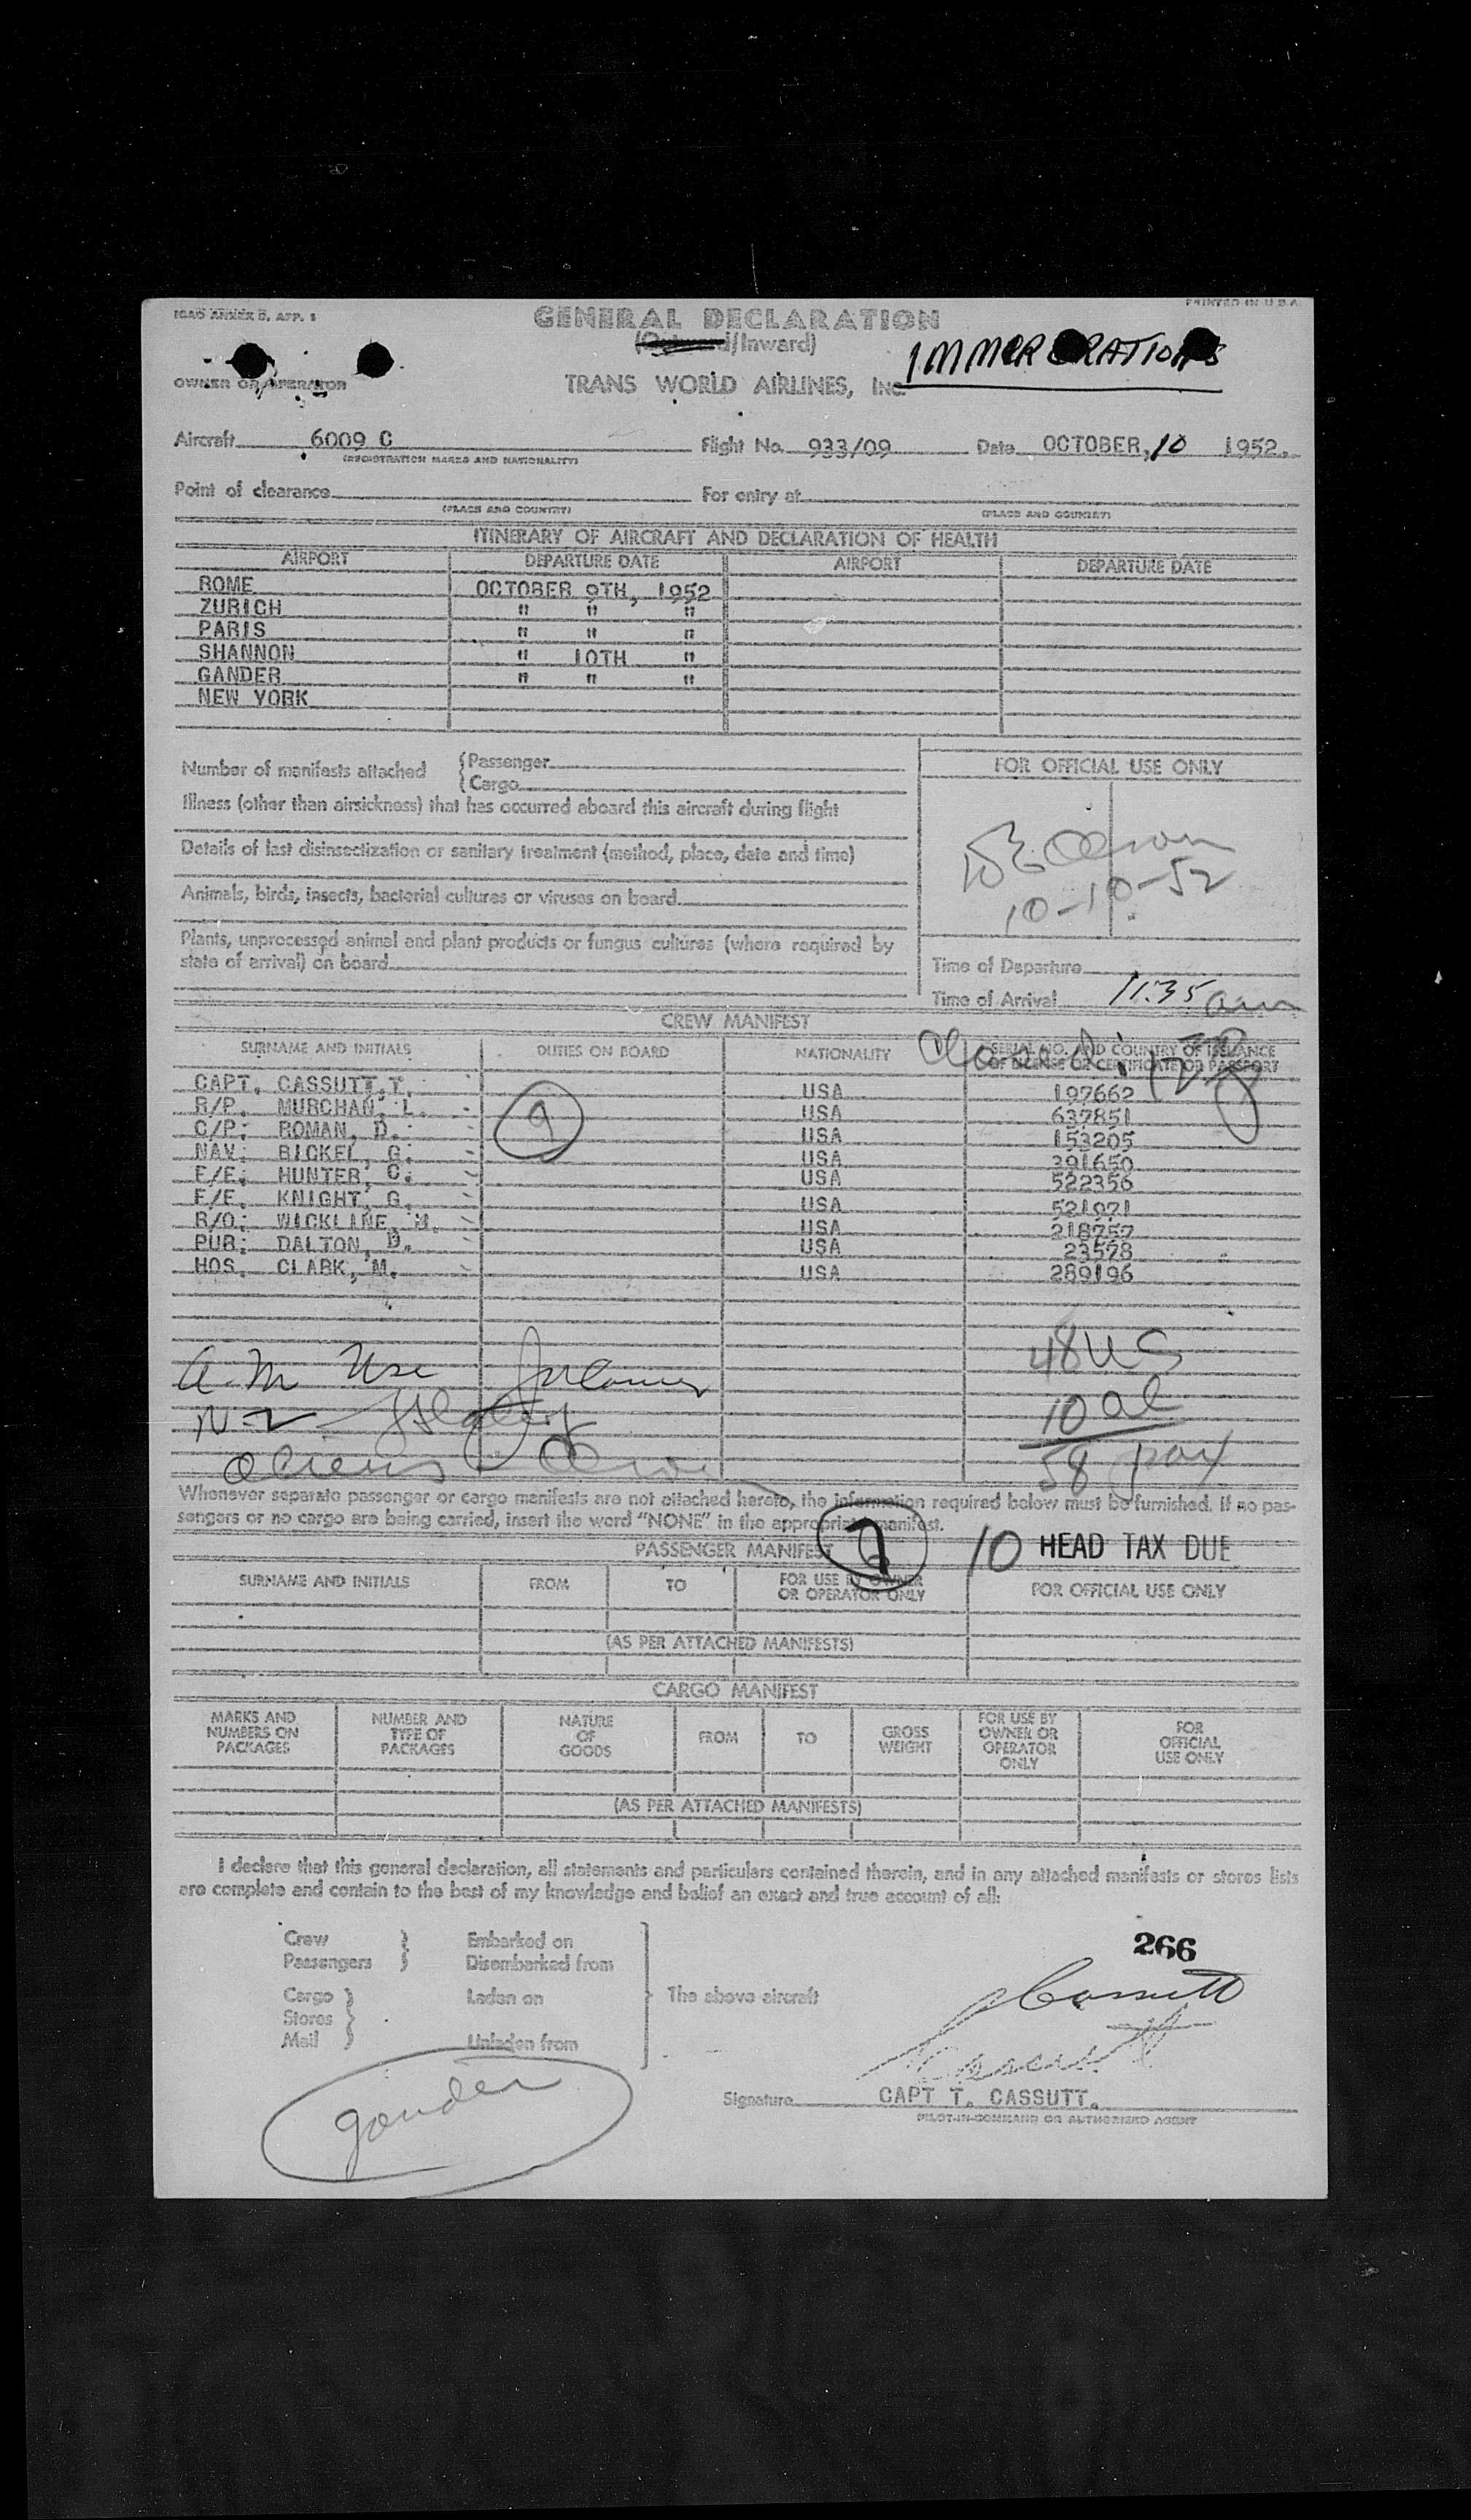 ICAO ANNEX 9, APP. 1
PRINTED IN U.S.A.
GENERAL DECLARATION
(Outward/Inward)
IMMIGRATIONS
OWNER OR OPERATOR
TRANS WORLD AIRLINES, INC.
Aircraft 6009 C Flight No. 933/09 Date OCTOBER, 10 1952.
(REGISTRATION MARKS AND NATIONALITY)
Point of clearance For entry at
(PLACE AND COUNTRY) (PLACE AND COUNTRY)
ITINERARY OF AIRCRAFT AND DECLARATION OF HEALTH
AIRPORT DEPARTURE DATE AIRPORT DEPARTURE DATE
ROME OCTOBER 9TH, 1952
ZURICH " " "
PARIS " " "
SHANNON " 10TH "
GANDER " " "
NEW YORK
Number of manifests attached { Passenger
{ Cargo
FOR OFFICIAL USE ONLY
Illness (other than airsickness) that has occurred aboard this aircraft during flight
Details of last disinsectization or sanitary treatment (method, place, date and time)
10-10-52
Animals, birds, insects, bacterial cultures or viruses on board
Plants, unprocessed animal and plant products or fungus cultures (where required by
state of arrival) on board
Time of Departure
Time of Arrival 11:35 am
CREW MANIFEST
SURNAME AND INITIALS DUTIES ON BOARD NATIONALITY SERIAL NO. AND COUNTRY OF ISSUANCE
OF LICENSE OR CERTIFICATE OR PASSPORT
CAPT. CASSUTT,T. USA 197662
R/P. MURCHAN, L. USA 637851
C/P: ROMAN, D. USA 153205
9
NAV: BICKEL, G. USA 391650
F/E. HUNTER, C. USA 522356
F/E. KNIGHT, G. USA 521971
R/O: WICKLINE, M. USA 218757
PUR: DALTON, D. USA 23578
HOS. CLARK, M. USA 289196
48 US
10 al
58 pax
Whenever separate passenger or cargo manifests are not attached hereto, the information required below must be furnished. If no pas-
sengers or no cargo are being carried, insert the word "NONE" in the appropriate manifest.
PASSENGER MANIFEST
10 HEAD TAX DUE
SURNAME AND INITIALS FROM TO FOR USE BY OWNER
OR OPERATOR ONLY FOR OFFICIAL USE ONLY
(AS PER ATTACHED MANIFESTS)
CARGO MANIFEST
MARKS AND
NUMBERS ON
PACKAGES
NUMBER AND
TYPE OF
PACKAGES
NATURE
OF
GOODS
FROM
TO
GROSS
WEIGHT
FOR USE BY
OWNER OR
OPERATOR
ONLY
FOR
OFFICIAL
USE ONLY
(AS PER ATTACHED MANIFESTS)
I declare that this general declaration, all statements and particulars contained therein, and in any attached manifests or stores lists
are complete and contain to the best of my knowledge and belief an exact and true account of all:
266
Crew } Embarked on
Passengers } Disembarked from
Cargo } Laden on The above aircraft
Stores }
Mail } Unladen from
Cassutt
Cassutt
gander
Signature CAPT T. CASSUTT.
PILOT-IN-COMMAND OR AUTHORIZED AGENT